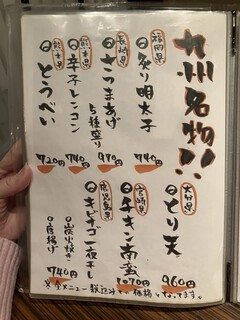 九州名物!!
福岡県
炙り明太子
740円
長崎県
さつまあげ
5種盛り
970円
熊本県
辛子レンコン
740円
熊本県
とうべい
720円
大分県
とり天
960円
宮崎県
チキン南蛮
1070円
鹿児島県
キビナゴ一夜干し
・炭火焼き
・唐揚げ
740円
メニュー税込みの価格となってます。